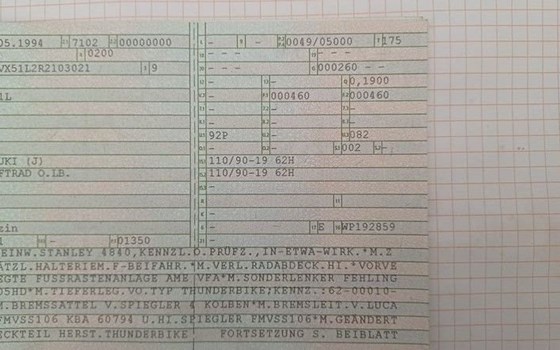 05.1994 7102 00000000 - - 0049/05000 175
0200 - - - -
VX51L2R2103021 9 - 000260 - -
- - 0,1900
1L - 000460 000460
- - -
- - -
92P - 082
- - 002 -
UKI (J) 110/90-19 62H
FTRAD O.LB. 110/90-19 62H
-
-
-
zin - E WP192859
1 - 01350 -
EINW.STANLEY 4840,KENNZL.O.PRÜFZ.,IN-ETWA-WIRK.*M.Z
ÄTZL.HALTERIEM.F-BEIFAHR.*M.VERL.RADABDECK.HI.*VORVE
EGTE FUSSRASTENANLAGE AME VFA*M.SONDERLENKER FEHLING
05HD*M.TIEFERLEG.VO.TYP THUNDERBIKE;KENNZ.:62-00010-
M.BREMSSATTEL V.SPIEGLER 4 KOLBEN*M.BREMSLEIT.V.LUCA
FMVSS106 KBA 60794 U.HI.SPIEGLER FMVSS106*M.GEÄNDERT
ECKTEIL HERST.THUNDERBIKE FORTSETZUNG S. BEIBLATT